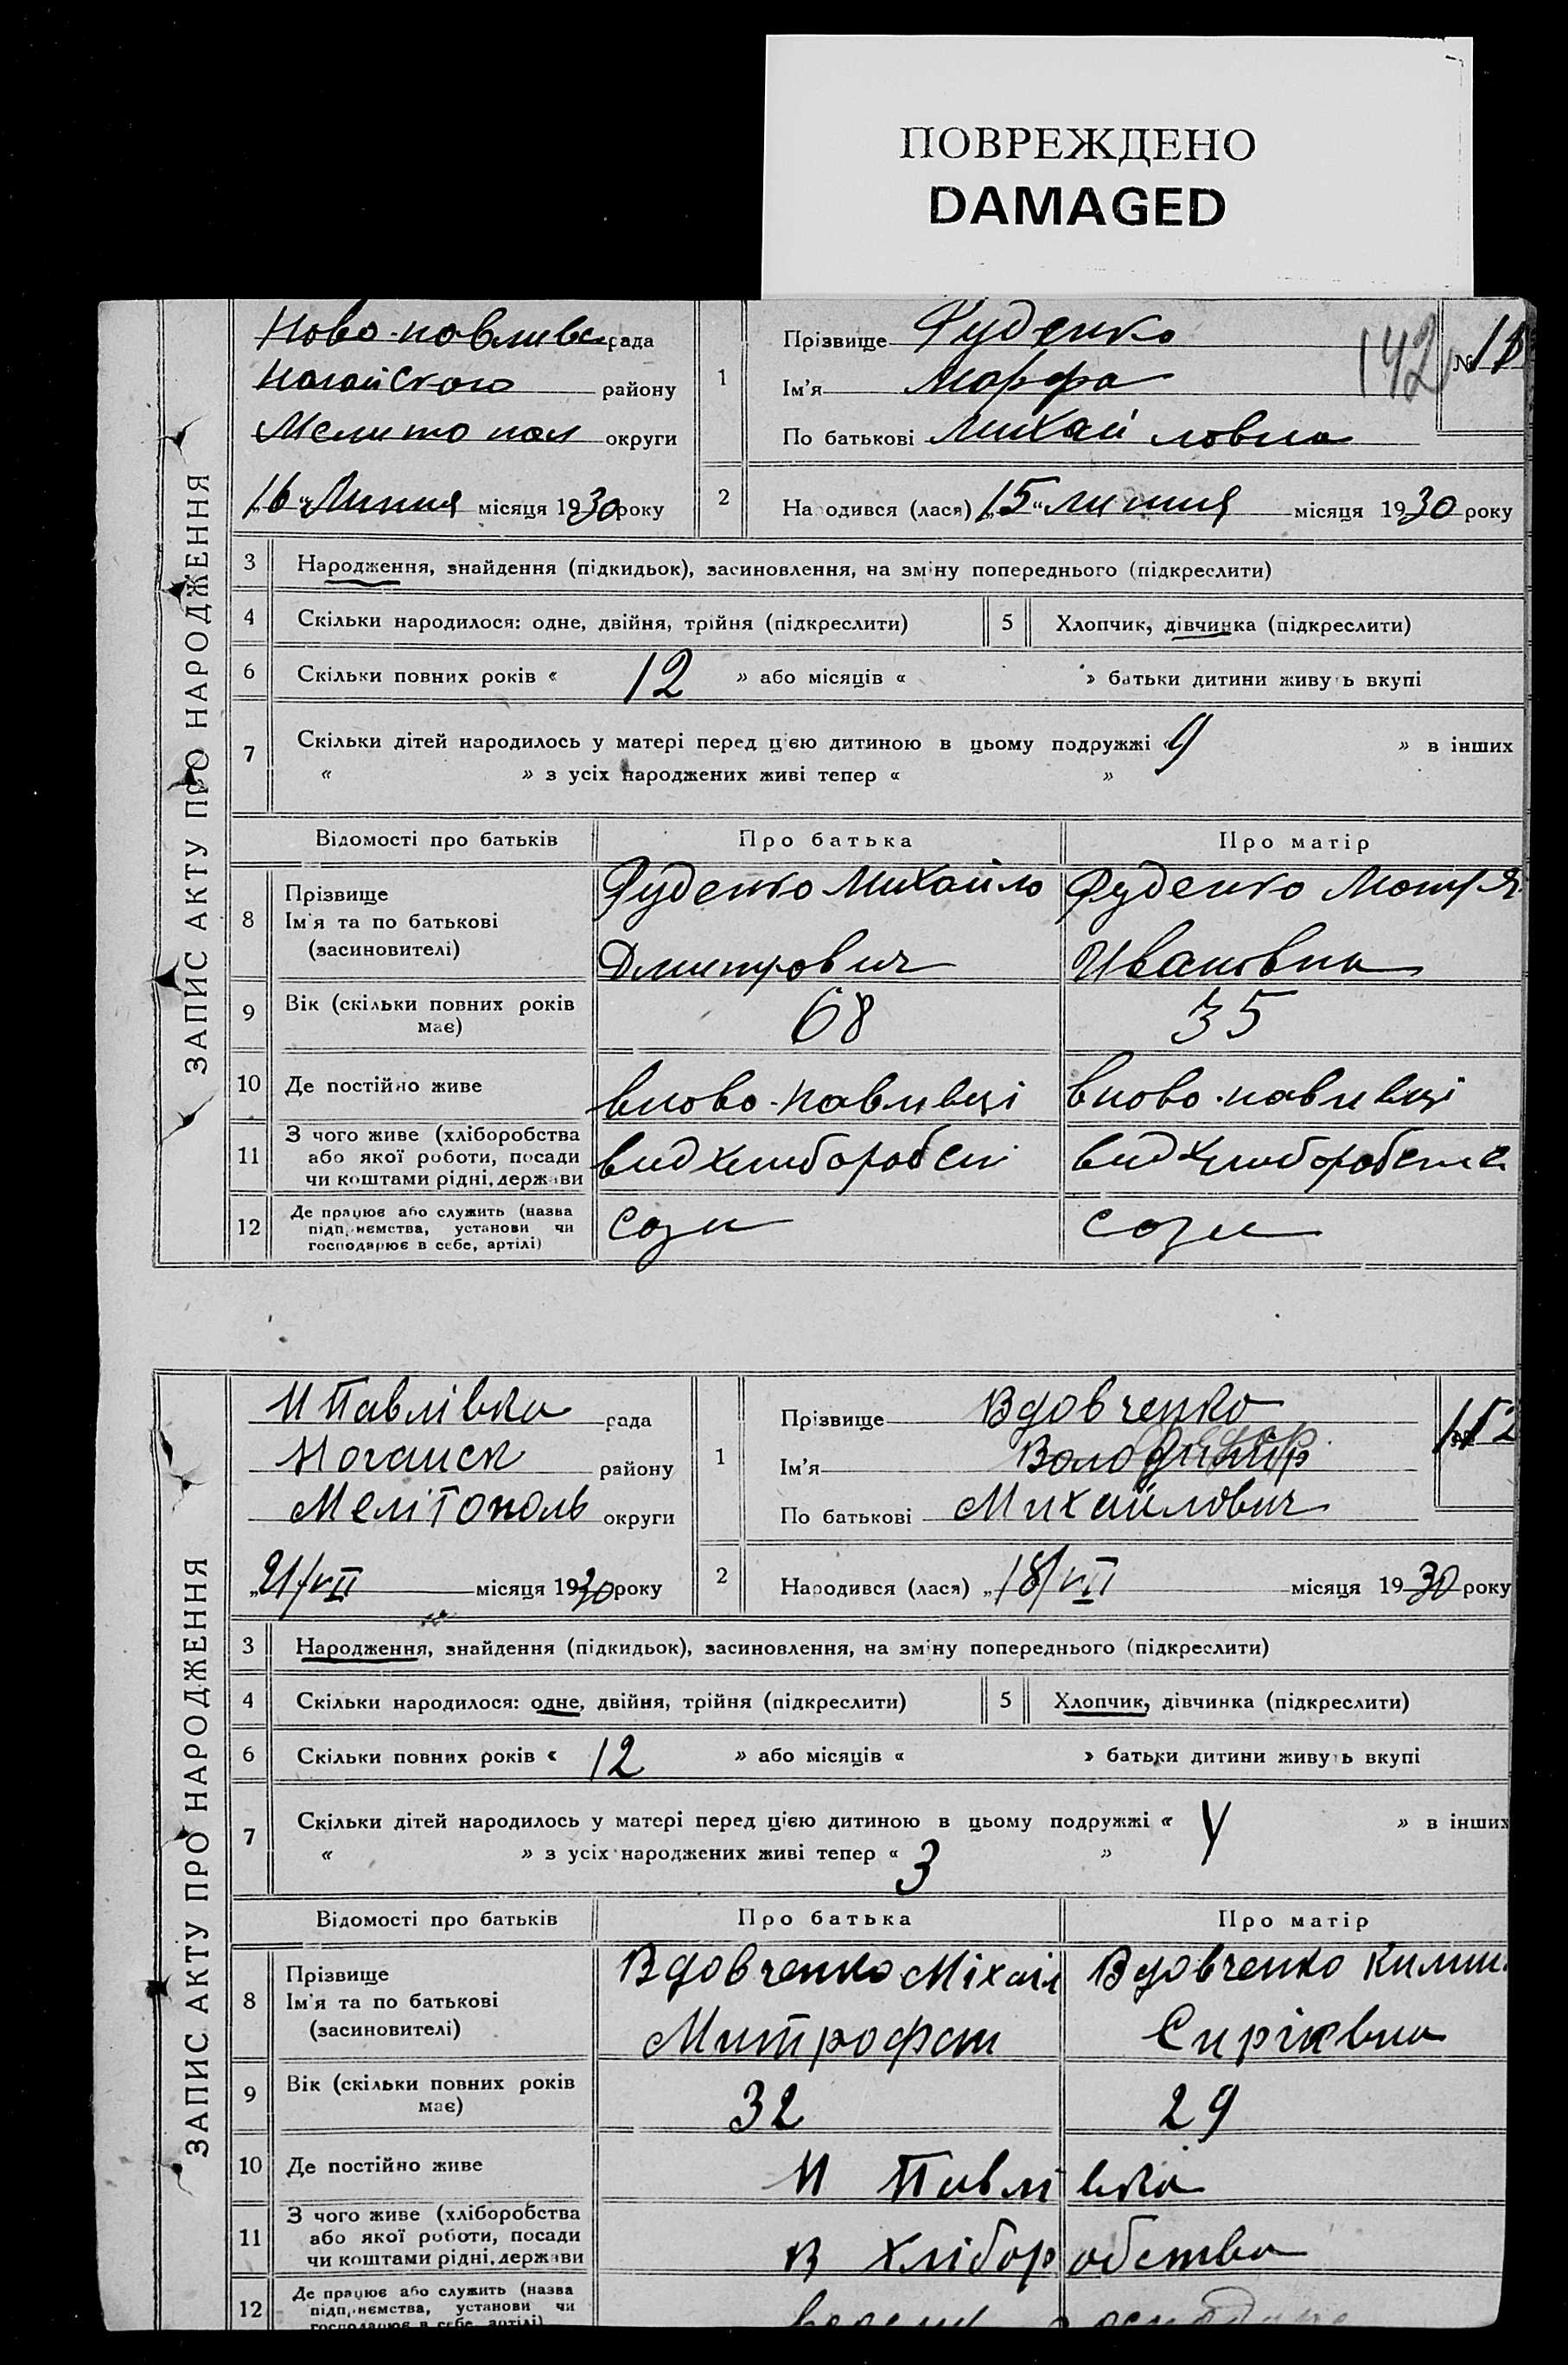 ПОВРЕЖДЕНО
DAMAGED
ЗАПИС АКТУ ПРО НАРОДЖЕННЯ
Ново-павливс рада
Ногайского району
Мелитопол округи
„16“ Липня місяця 1930 року
1
Прізвище Руденко
Ім'я Марфа
По батькові Михайловна
142
№
2
Народився (лася) „15“ липня місяця 1930 року
3 Народження, знайдення (підкидьок), засиновлення, на зміну попереднього (підкреслити)
4 Скільки народилося: одне, двійня, трійня (підкреслити) 5 Хлопчик, дівчинка (підкреслити)
6 Скільки повних років « 12 » або місяців « » батьки дитини живуть вкупі
7 Скільки дітей народилось у матері перед цією дитиною в цьому подружжі « 9 » в інших
« » з усіх народжених живі тепер « »
Відомості про батьків Про батька Про матір
8 Прізвище
Ім'я та по батькові
(засиновителі)
Руденко Михайло
Дмитрович
Руденко Мотря
Ивановна
9 Вік (скільки повних років
має)
68 35
10 Де постійно живе вново-павливці вново-павливці
11 З чого живе (хліборобства
або якої роботи, посади
чи коштами рідні, держави
вид хлиборобст
вид хлиборобства
12 Де працює або служить (назва
підприємства, установи чи
господарює в себе, артілі)
Сози Сози
ЗАПИС АКТУ ПРО НАРОДЖЕННЯ
Н Павлівка рада
Ногаиск району
Мелітополь округи
„21/VII місяця 1930 року
1
Прізвище Вдовченко
Ім'я Володимир
По батькові Михайлович
№ 152
2
Народився (лася) „18/VII місяця 1930 року
3 Народження, знайдення (підкидьок), засиновлення, на зміну попереднього (підкреслити)
4 Скільки народилося: одне, двійня, трійня (підкреслити) 5 Хлопчик, дівчинка (підкреслити)
6 Скільки повних років « 12 » або місяців « » батьки дитини живуть вкупі
7 Скільки дітей народилось у матері перед цією дитиною в цьому подружжі « 4 » в інших
« » з усіх народжених живі тепер « 3 »
Відомості про батьків Про батька Про матір
8 Прізвище
Ім'я та по батькові
(засиновителі)
Вдовченко Міхаіл
Митрофан
Вдовченко
9 Вік (скільки повних років
має)
32 29
10 Де постійно живе Н Павлівка
11 З чого живе (хліборобства
або якої роботи, посади
чи коштами рідні, держави
В хліборобства
12 Де працює або служить (назва
підприємства, установи чи
господарює в себе, артілі)